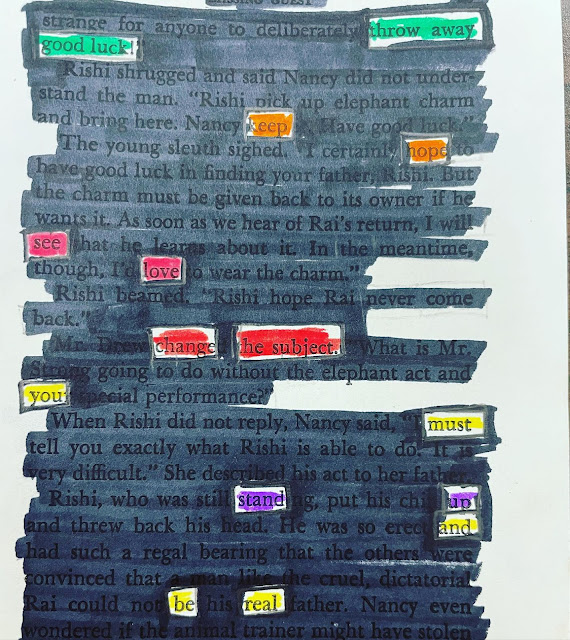 strange for anyone to deliberately throw away
good luck!"
Rishi shrugged and said Nancy did not under-
stand the man. "Rishi pick up elephant charm
and bring here. Nancy keep it. Have good luck."
The young sleuth sighed. "I certainly hope to
have good luck in finding your father, Rishi. But
the charm must be given back to its owner if he
wants it. As soon as we hear of Rai's return, I will
see that he learns about it. In the meantime,
though, I'd love to wear the charm."
Rishi beamed. "Rishi hope Rai never come
back."
Mr. Drew change the subject. "What is Mr.
Strong going to do without the elephant act and
your special performance?"
When Rishi did not reply, Nancy said, "I must
tell you exactly what Rishi is able to do. It is
very difficult." She described his act to her father.
Rishi, who was still standing, put his chin up
and threw back his head. He was so erect and
had such a regal bearing that the others were
convinced that a man like the cruel, dictatorial
Rai could not be his real father. Nancy even
wondered if the animal trainer might have stolen